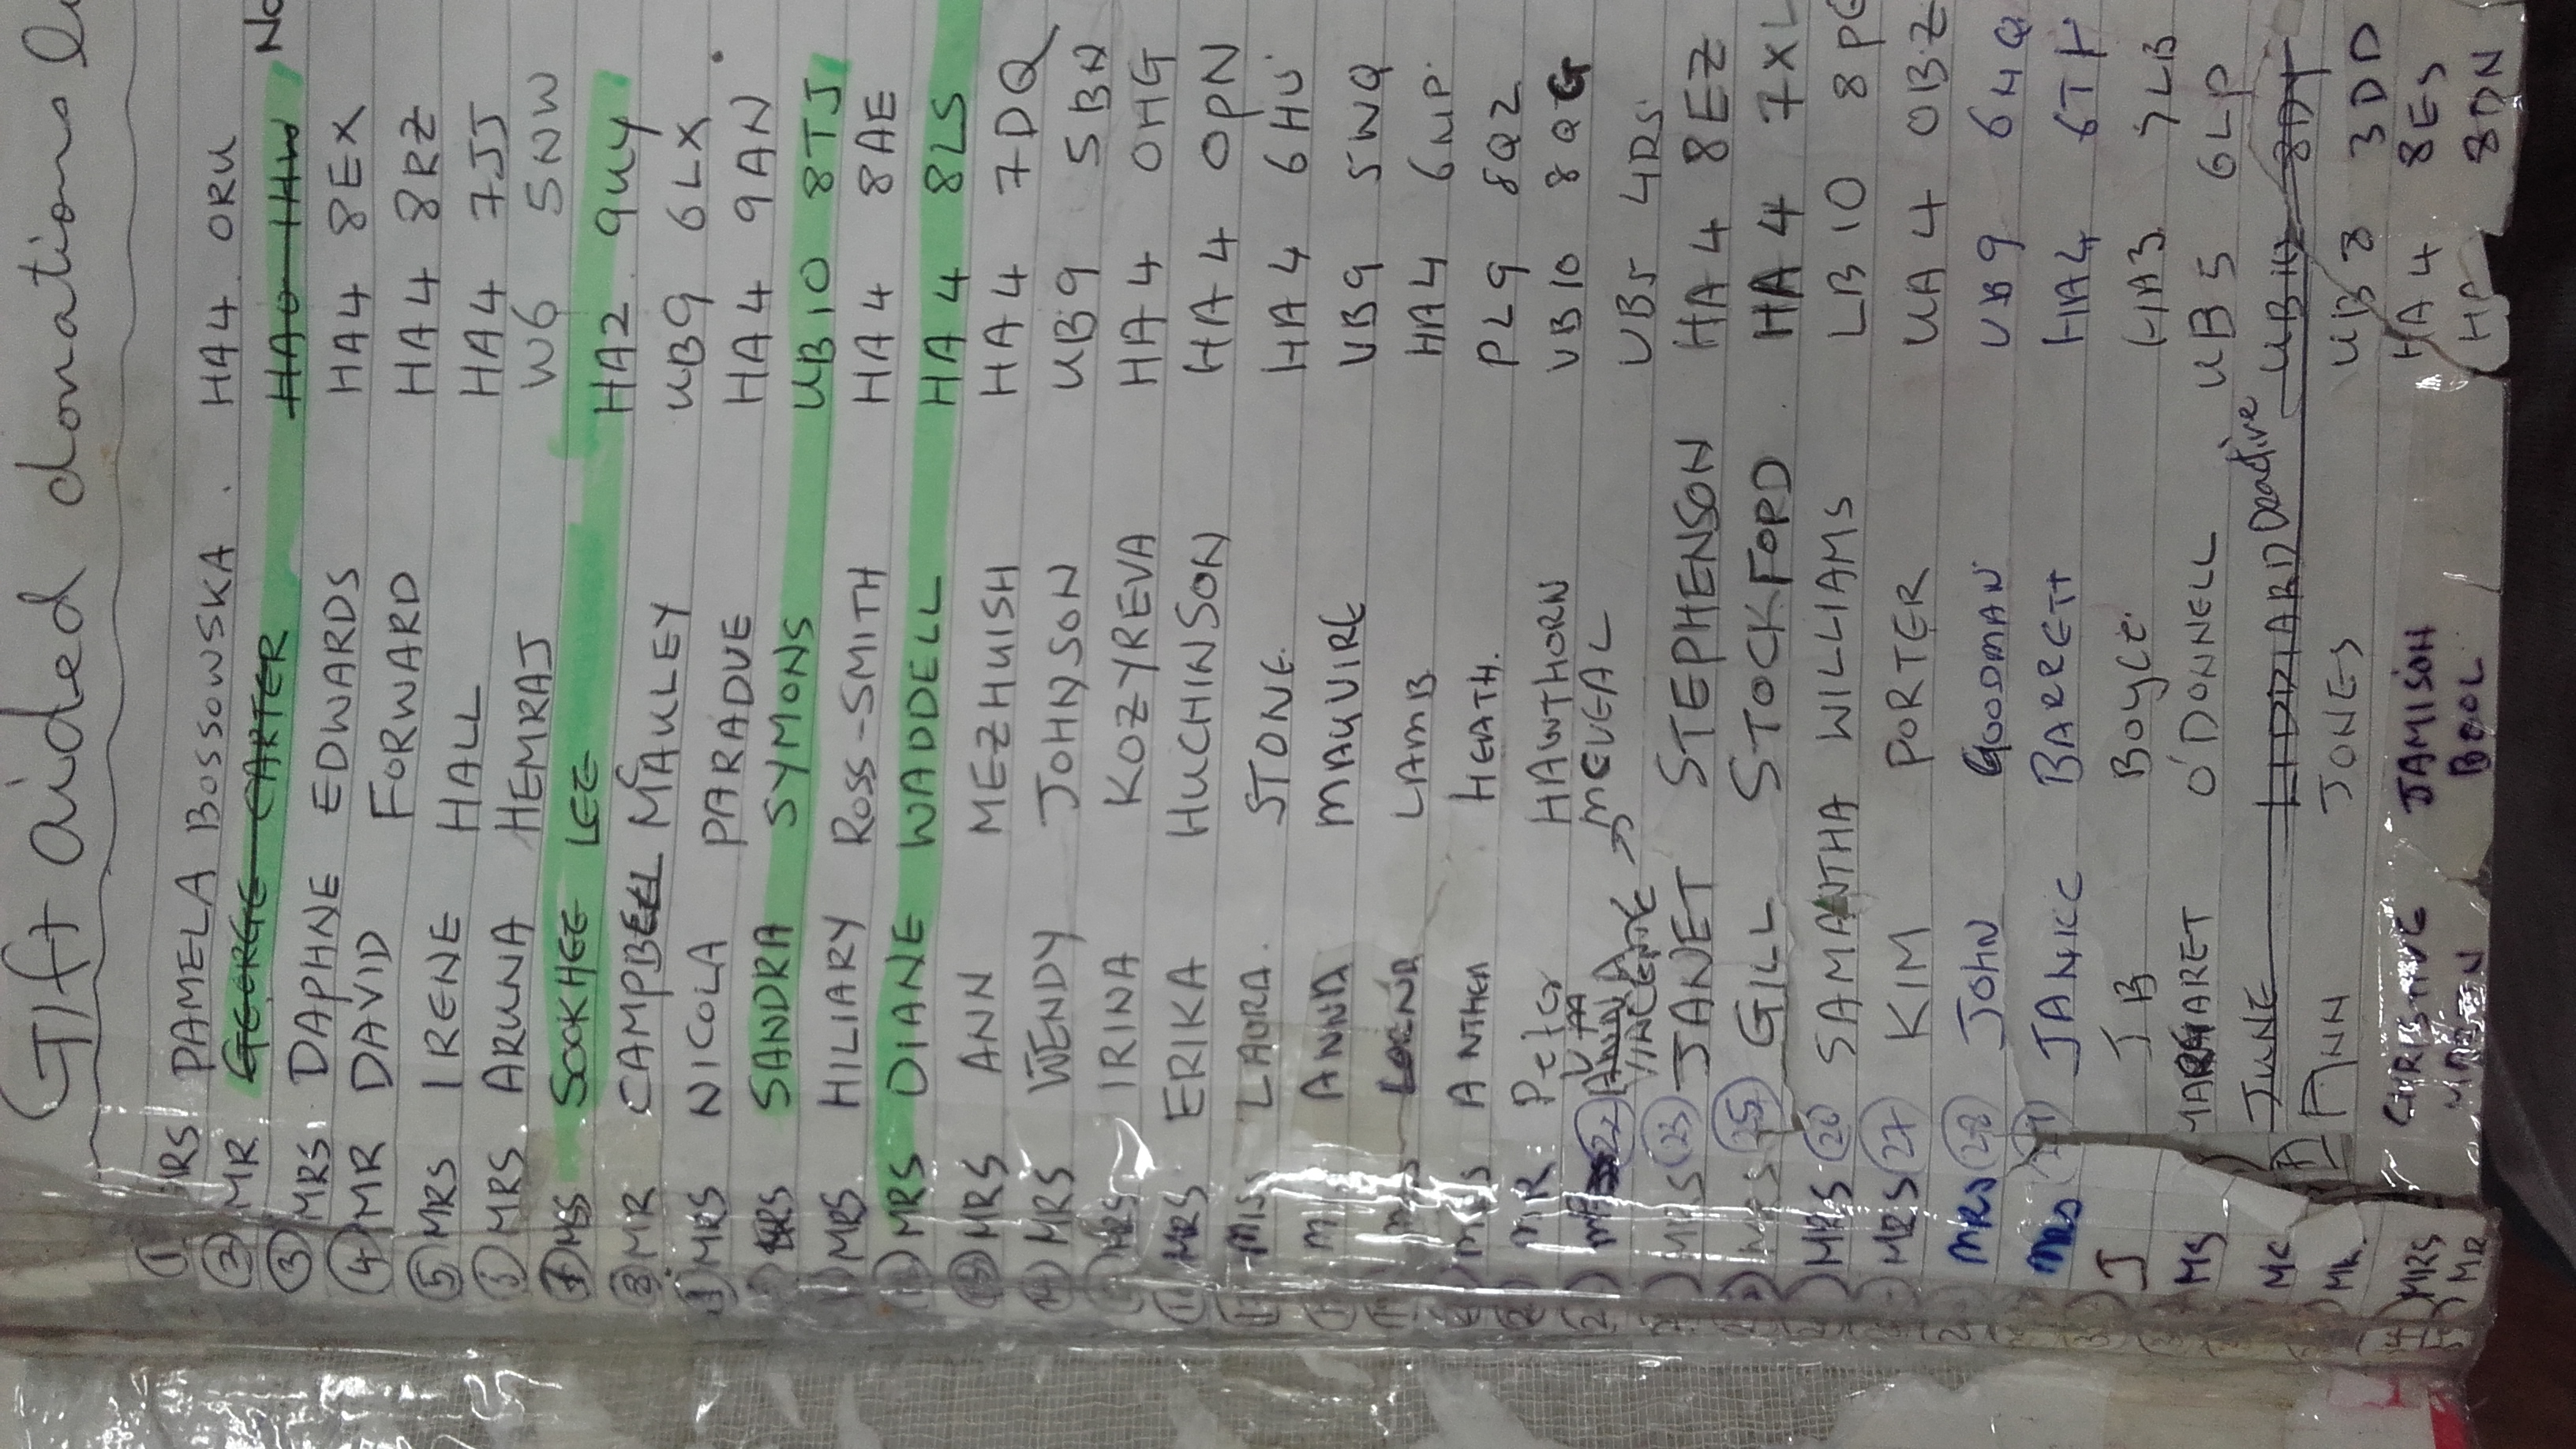 Gift aided donations
① MRS PAMELA BOSSOWSKA . HA4 0RU
② MR GEORGE CARTER HA0 1HW
③ MRS DAPHNE EDWARDS HA4 8EX
④ MR DAVID FORWARD HA4 8RZ
⑤ MRS IRENE HALL HA4 7JJ
MRS ARUNA HEMRAJ W6 5NW
SOOKHEE LEE HA2 9UY
⑧ MR CAMPBELL McAULEY UB9 6LX
MRS NICOLA PARADUE HA4 9AN
MRS SANDRA SYMONS UB10 8TJ
MRS HILIARY ROSS-SMITH HA4 8AE
⑫ MRS DIANE WADDELL HA4 8LS
⑬ MRS ANN MEZHUISH HA4 7DQ
⑭ MRS WENDY JOHNSON UB9 5BN
MRS IRINA KOZYREVA HA4 0HG
MRS ERIKA HUCHINSON HA4 0PN
MISS LAURA. STONE. HA4 6HU
ANNA MAGUIRE UB9 5WQ
LAMB HA4
ANTHEA HEATH. PL9 8QZ
MR Peter HAWTHORN UB10 8QG
22 ANNA MCVEAL UB5 4RS
VINCENTE
MRS 23 JANET STEPHENSON HA4 8EZ
MRS 25 GILL STOCKFORD HA4 7XL
MRS 26 SAMANTHA WILLIAMS LB10
MRS 27 KIM PORTER UA4 0BZ
MRS 28 JOHN GOODMAN UB9 6HQ
MRS BARRETT HA4
J JB Boyce HA3 7LB
MS MARGARET O'DONNELL UB5 6LP
JUNE LIDDIARD Deactive UB10 8DY
ANN JONES UB8 3DD
MRS CHRISTINE JAMISON HA4 8ES
MR BOOL 8DN